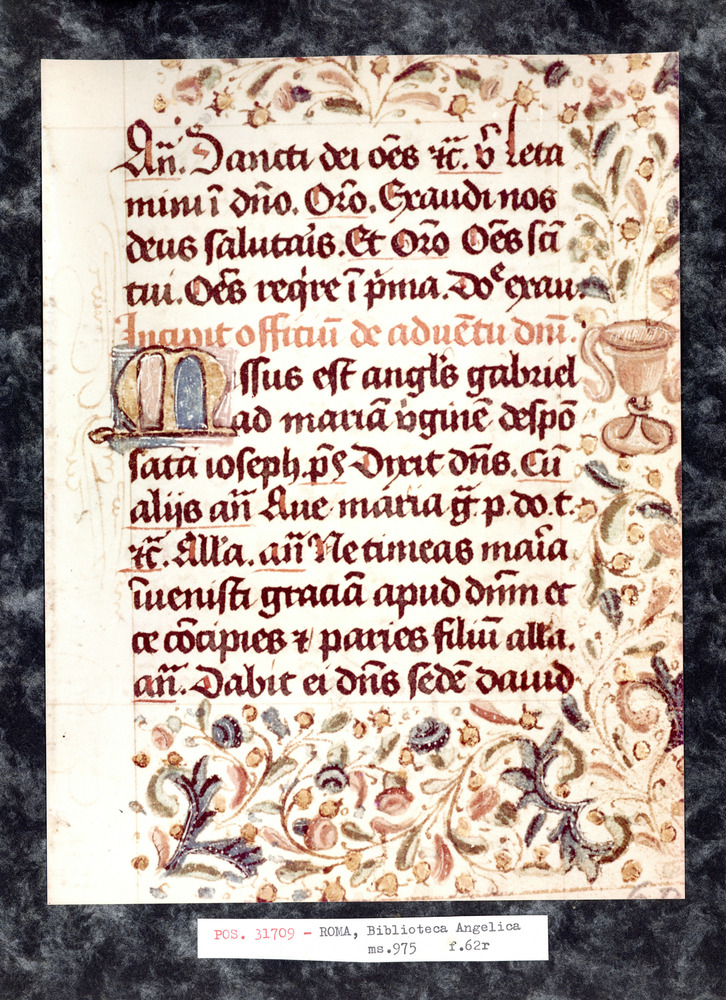 An̄. Sancti dei oēs ⁊c̄. v̄ leta
mini ī dn̄o. Orō. Exaudi nos
deus salutar̄is. Et Orō Oēs sc̄i
tui. Oēs reqͥre ī pͥma. Doᵉ exau.
Incipit officiū de aduētu dn̄i.
Missus est angl̄s gabriel
ad mariā v̄ginē despō
sata ioseph. pͤs Dixit dn̄s. Cū
alijs an̄ Aue maria gr̄. p. do. t.
⁊c̄. All'a. an̄ Ne timeas mar̄ia
īuenisti graciā apud dn̄m et
ce cōcipies ⁊ paries filiū alla.
an̄. Dabit ei dn̄s sedē dauid
POS. 31709 - ROMA, Biblioteca Angelica
ms.975 f.62r